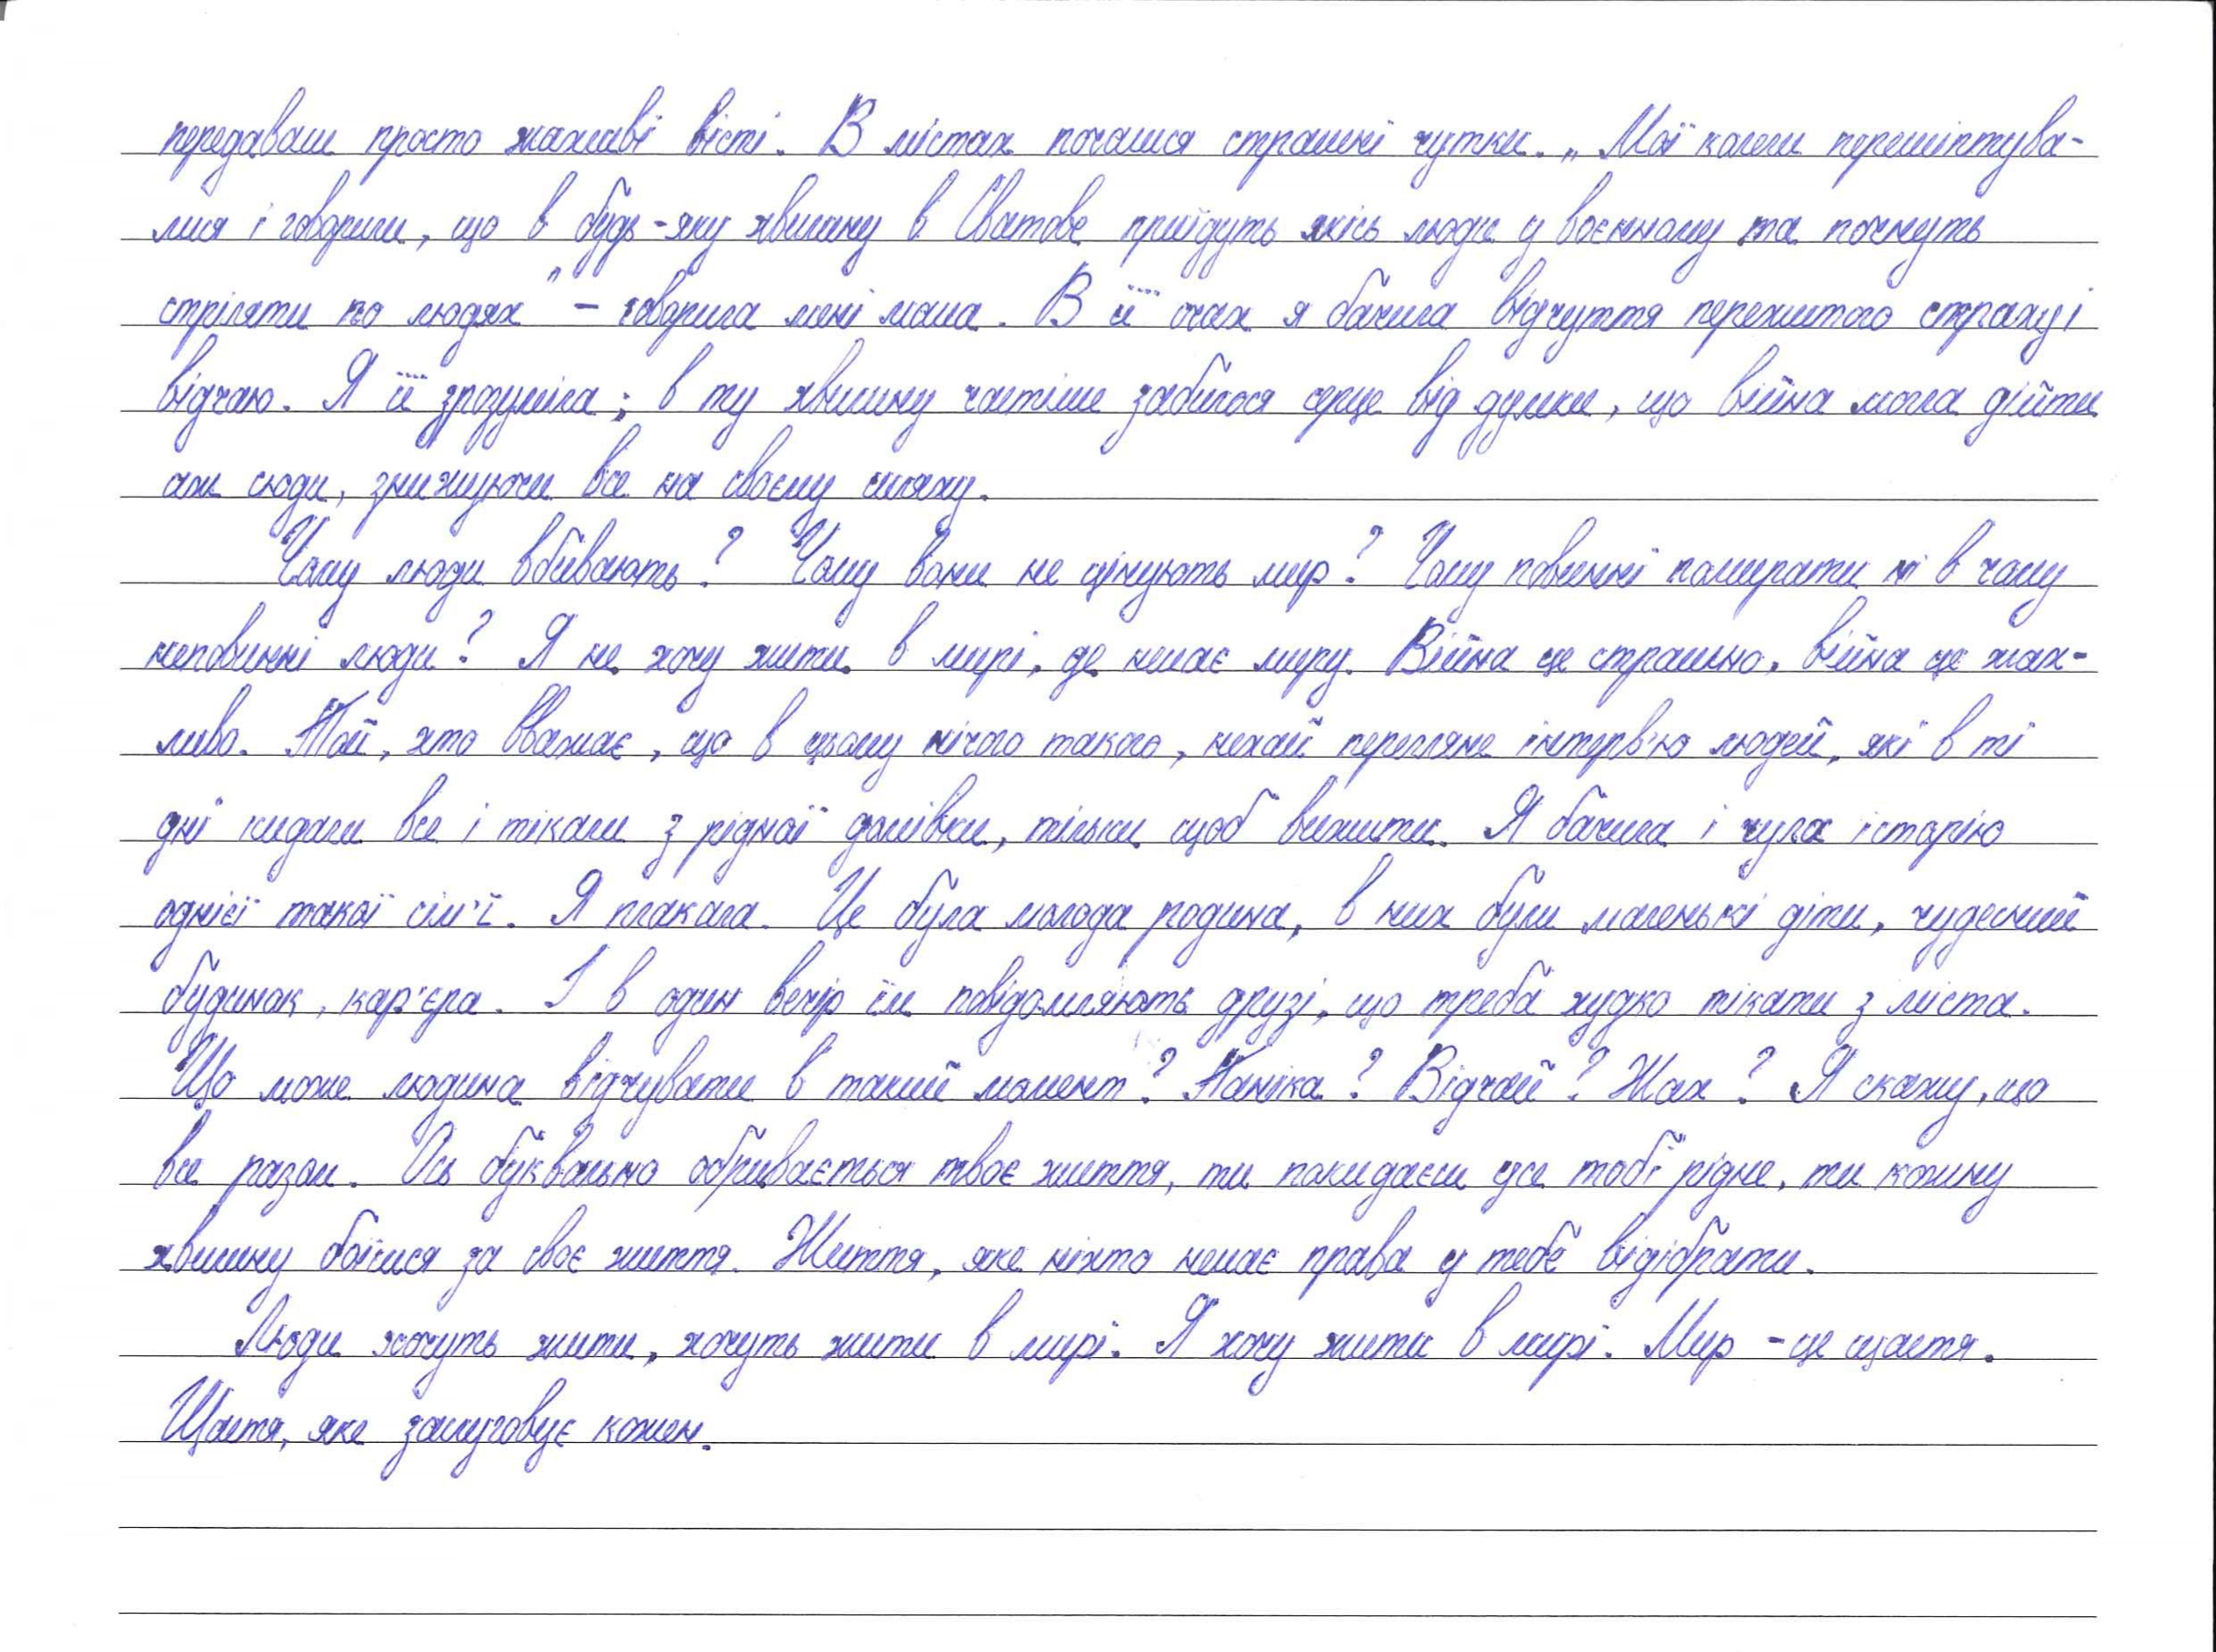 передавали просто жахливі вісті. В містах почалися страшні чутки. „Мої колеги перешіптува-
лися і говорили, що в будь-яку хвилину в Сватове приїдуть якісь люди у воєнному та почнуть
стріляти по людях" – говорила мені мама. В її очах я бачила відчуття пережитого страху і
відчаю. Я її зрозуміла; в ту хвилину частіше забилося серце від думки, що війна могла дійти
аж сюди, знижуючи все на своєму шляху.
Чому люди вбивають? Чому вони не цінують мир? Чому повинні помирати ні в чому
неповинні люди? Я не хочу жити в мирі, де немає миру. Війна це страшно, війна це жах-
ливо. Той, хто вважає, що в цьому нічого такого, нехай перегляне інтерв'ю людей, які в ті
дні кидали все і тікали з рідної домівки, тільки щоб вижити. Я бачила і чула історію
однієї такої сім'ї. Я плакала. Це була молода родина, в них були маленькі діти, чудесний
будинок, кар'єра. І в один вечір їм повідомляють друзі, що треба худко тікати з міста.
Що може людина відчувати в такий момент? Паніка? Відчай? Жах? Я скажу, що
все разом. Ось буквально обривається твоє життя, ти покидаєш усе тобі рідне, ти кожну
хвилину боїшся за своє життя. Життя, яке ніхто немає права у тебе відібрати.
Люди хочуть жити, хочуть жити в мирі. Я хочу жити в мирі. Мир – це щастя.
Щастя, яке заслуговує кожен.